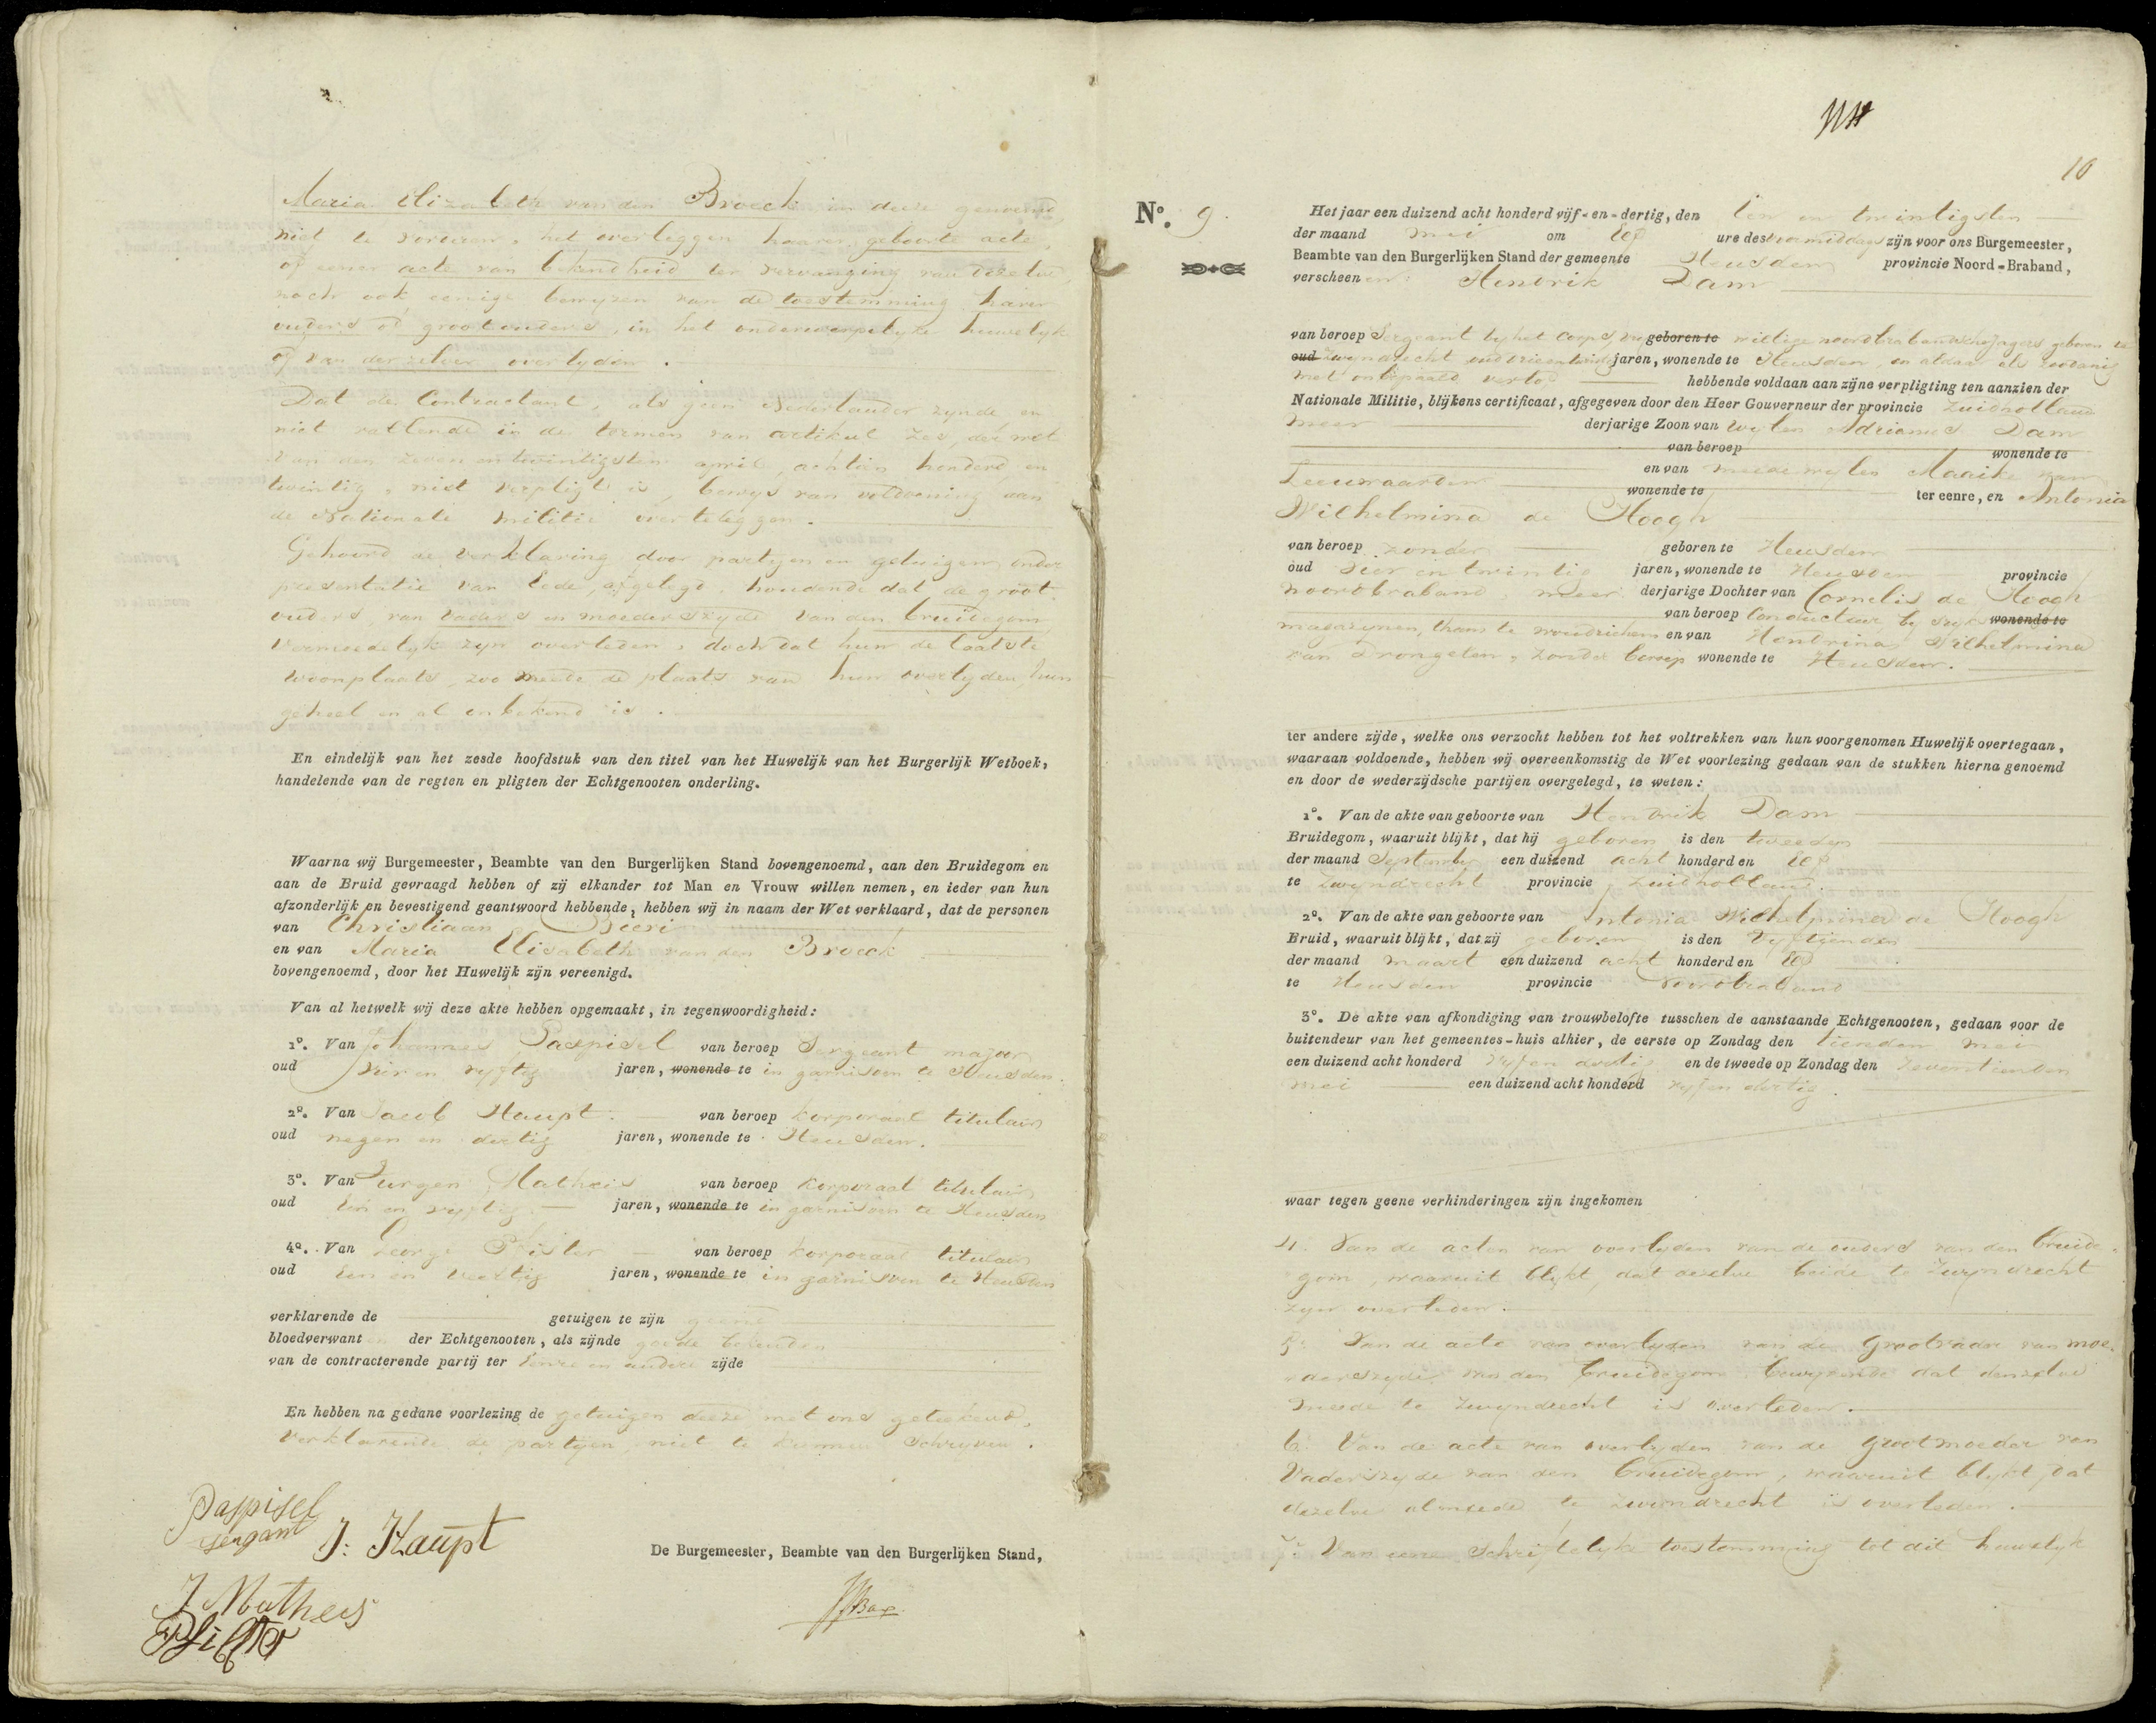 Maria Elizabeth van den Broeck in deeze genoemd
niet te vorderen, het overleggen haarer geboorte acte,
of eener acte van bekendheid ter vervanging van dezelve,
noch ook eenige bewyzen van de toestemming harer
ouders of grootouders, in het onderwerpelyke huwelyk
of van derzelver overlyden.
Dat de Contractant, als geen Nederlander zynde en
niet vallende in de termen van artikul zes, der wet
van den zeven en twintigsten april, achtien honderd en
twintig, niet verpligt is, bewys van voldoening aan
de Nationale militie over te leggen.
Gehoord de verklaring door partyen en getuigen, onder
presentatie van Eede, afgelegd, houdende dat de groot-
ouders, van vaders en moeders zyde van den bruidegom
vermoedelyk zyn overleden, doch dat hun de laatste
woonplaats, zoo meede de plaats van hun overlyden, hun
geheel en al onbekend is.
En eindelijk van het zesde hoofdstuk van den titel van het Huwelijk van het Burgerlijk Wetboek,
handelende van de regten en pligten der Echtgenooten onderling.
Waarna wij Burgemeester, Beambte van den Burgerlijken Stand bovengenoemd, aan den Bruidegom en
aan de Bruid gevraagd hebben of zij elkander tot Man en Vrouw willen nemen, en ieder van hun
afzonderlijk en bevestigend geantwoord hebbende, hebben wij in naam der Wet verklaard, dat de personen
van Christiaan
en van Maria Elisabeth van den Broeck
bovengenoemd, door het Huwelijk zijn vereenigd.
Van al hetwelk wij deze akte hebben opgemaakt, in tegenwoordigheid:
1o. Van Johannes Paspisel van beroep Sergeant majoor
oud vier en vyftig jaren, wonende te in garnisoen te Heusden.
2o. Van Jacob Haupt. van beroep korporaal titulair
oud negen en dertig jaren, wonende te Heusden.
3o. Van Jurgen Matheis van beroep korporaal titulair
oud een en vyftig jaren, wonende te in garnisoen te Heusden
4o. Van George Pfister van beroep korporaal titulair
oud een en veertig jaren, wonende te in garnisoen te Heusden
verklarende de getuigen te zijn geene
bloedverwanten der Echtgenooten, als zijnde goede bekenden
van de contracterende partij ter eenre en andere zijde
En hebben na gedane voorlezing de getuigen deeze met ons geteekend,
verklarende de partyen, niet te kunnen schryven.
Paspisel
sergant
J: Haupt
De Burgemeester, Beambte van den Burgerlijken Stand,
J Matheis
Pfister
10
No. 9.
Het jaar een duizend acht honderd vijf-en-dertig, den een en twintigsten
der maand mei om elf ure des voormiddags zijn voor ons Burgemeester,
Beambte van den Burgerlijken Stand der gemeente Heusden provincie Noord-Braband,
verscheenen: Hendrik Dam
van beroep Sergeant by het corps vry geboren te willige noordbrabandsche jagers geboren te
oud Zwyndrecht oud drieentwintig jaren, wonende te Heusden, en aldaar als zoodanig
met onbepaald verlof hebbende voldaan aan zijne verpligting ten aanzien der
Nationale Militie, blijkens certificaat, afgegeven door den Heer Gouverneur der provincie Zuidholland
meer derjarige Zoon van wylen Adrianus Dam
van beroep wonende te
en van meede wylen Maaike van
Leeuwaarden wonende te ter eenre, en Antonia
Wilhelmina de Hoogh
van beroep zonder geboren te Heusden
oud vier en twintig jaren, wonende te Heusden provincie
Noordbraband, meer derjarige Dochter van Cornelis de Hoogh
van beroep Conducteur by Ryks wonende te
magazynen, thans te woudrichem en van Hendrina Wilhelmina
van Drongelen, zonder beroep wonende te Heusden.
ter andere zijde, welke ons verzocht hebben tot het voltrekken van hun voorgenomen Huwelijk overtegaan,
waaraan voldoende, hebben wij overeenkomstig de Wet voorlezing gedaan van de stukken hierna genoemd
en door de wederzijdsche partijen overgelegd, te weten:
1o. Van de akte van geboorte van Hendrik Dam
Bruidegom, waaruit blijkt, dat hij geboren is den tweeden
der maand September een duizend acht honderd en elf
te Zwyndrecht provincie Zuidholland.
2o. Van de akte van geboorte van Antonia Wilhelmina de Hoogh
Bruid, waaruit blijkt, dat zij geboren is den vyftienden
der maand maart een duizend acht honderd en elf
te Heusden provincie Noordbraband
3o. De akte van afkondiging van trouwbelofte tusschen de aanstaande Echtgenooten, gedaan voor de
buitendeur van het gemeentes-huis alhier, de eerste op Zondag den tienden mei
een duizend acht honderd vyf en dertig en de tweede op Zondag den zeventienden
mei een duizend acht honderd vyf en dertig.
waar tegen geene verhinderingen zijn ingekomen
4. Van de acten van overlyden van de ouders van den bruide-
gom, waaruit blykt, dat dezelve beide te Zwyndrecht
zyn overleden.
5. Van de acte van overlyden van den Grootvader van moe-
derszyde van den bruidegom bewyzende dat denzelve
meede te Zwyndrecht is overleden.
6. Van de acte van overlyden van de grootmoeder van
Vaderszyde van den bruidegom, waaruit blykt, dat
dezelve almeede te Zwyndrecht is overleden.
7. Van eene schriftelyke toestemming tot dit huwelyk